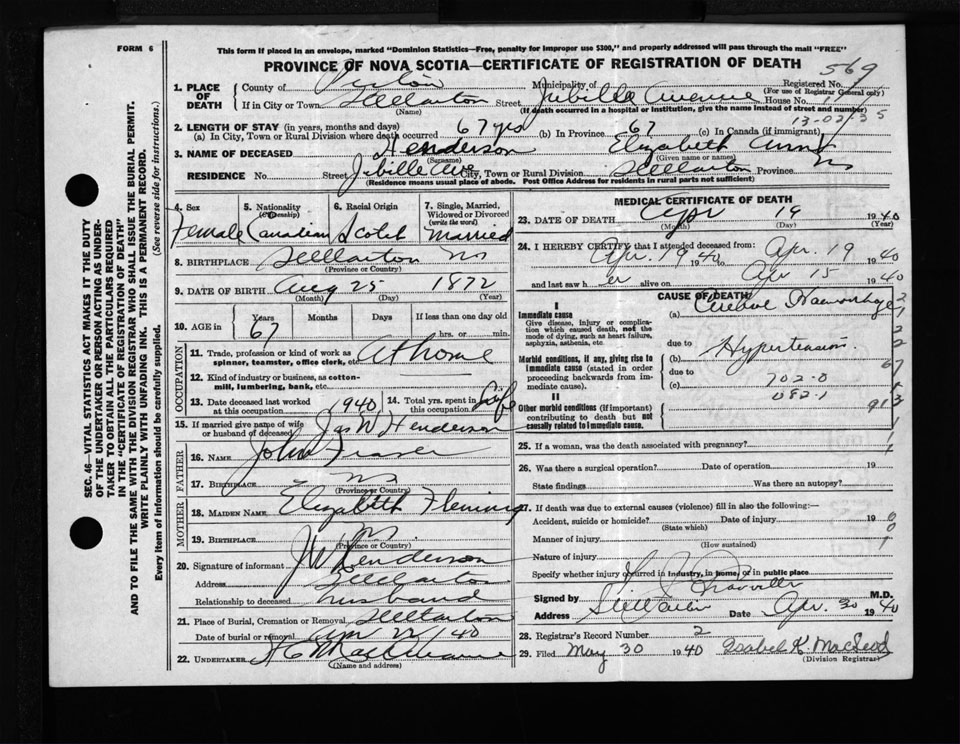 FORM 6
This form if placed in an envelope, marked "Dominion Statistics—Free, penalty for improper use $300," and properly addressed will pass through the mail "FREE"
PROVINCE OF NOVA SCOTIA—CERTIFICATE OF REGISTRATION OF DEATH
Registered No. 569
(For use of Registrar General only)
1. PLACE OF DEATH
County of Pictou Municipality of
If in City or Town Stellarton Street Jubilee Avenue House No.
(Name) (If death occurred in a hospital or institution, give the name instead of street and number)
13-02-35
2. LENGTH OF STAY (in years, months and days)
(a) In City, Town or Rural Division where death occurred 67 yrs (b) In Province 67 (c) In Canada (if immigrant)
3. NAME OF DECEASED Henderson Elizabeth Ann
(Surname) (Given name or names)
RESIDENCE No. Street Jibille Ave City, Town or Rural Division Stellarton Province NS
(Residence means usual place of abode. Post Office Address for residents in rural parts not sufficient)
4. Sex Female
5. Nationality (Citizenship) Canadian
6. Racial Origin Scotch
7. Single, Married, Widowed or Divorced (write the word) Married
8. BIRTHPLACE Stellarton NS
(Province or Country)
9. DATE OF BIRTH Aug 25 1872
(Month) (Day) (Year)
10. AGE in Years 67 Months Days If less than one day old
hrs. or min.
OCCUPATION
11. Trade, profession or kind of work as spinner, teamster, office clerk, etc. At home
12. Kind of industry or business, as cotton-mill, lumbering, bank, etc.
13. Date deceased last worked at this occupation 1940
14. Total yrs. spent in this occupation Life
15. If married give name of wife or husband of deceased Jas W Henderson
FATHER
16. NAME John Fraser
17. BIRTHPLACE NS
(Province or Country)
MOTHER
18. MAIDEN NAME Elizabeth Fleming
19. BIRTHPLACE NS
(Province or Country)
20. Signature of informant J W Henderson
Address Stellarton
Relationship to deceased husband
21. Place of Burial, Cremation or Removal Stellarton
Date of burial or removal Apr 22 1940
22. UNDERTAKER
(Name and address)
MEDICAL CERTIFICATE OF DEATH
23. DATE OF DEATH Apr 19 1940
(Month) (Day) (Year)
24. I HEREBY CERTIFY that I attended deceased from:
Apr. 19 1940 to Apr. 19 1940
and last saw her alive on Apr 15 1940
CAUSE OF DEATH
I
Immediate cause
Give disease, injury or complication which caused death, not the mode of dying, such as heart failure, asphyxia, asthenia, etc.
(a) Haemorrhage
due to
Morbid conditions, if any, giving rise to immediate cause (stated in order proceeding backwards from immediate cause).
(b) Hypertension
due to
(c) 702-0
082-1
II
Other morbid conditions (if important) contributing to death but not causally related to immediate cause.
25. If a woman, was the death associated with pregnancy?
26. Was there a surgical operation? Date of operation 19
State findings Was there an autopsy?
27. If death was due to external causes (violence) fill in also the following:—
Accident, suicide or homicide? Date of injury 19
(State which)
Manner of injury
(How sustained)
Nature of injury
Specify whether injury occurred in industry, in home, or in public place
Signed by M.D.
Address Stellarton Date Apr. 30 1940
28. Registrar's Record Number 2
29. Filed May 30 1940 Isabel K. MacLeod
(Division Registrar)
SEC. 46—VITAL STATISTICS ACT MAKES IT THE DUTY OF THE UNDERTAKER OR PERSON ACTING AS UNDERTAKER TO OBTAIN ALL THE PARTICULARS REQUIRED IN THE "CERTIFICATE OF REGISTRATION OF DEATH" AND TO FILE THE SAME WITH THE DIVISION REGISTRAR WHO SHALL ISSUE THE BURIAL PERMIT.
WRITE PLAINLY WITH UNFADING INK. THIS IS A PERMANENT RECORD.
Every item of information should be carefully supplied. (See reverse side for instructions.)